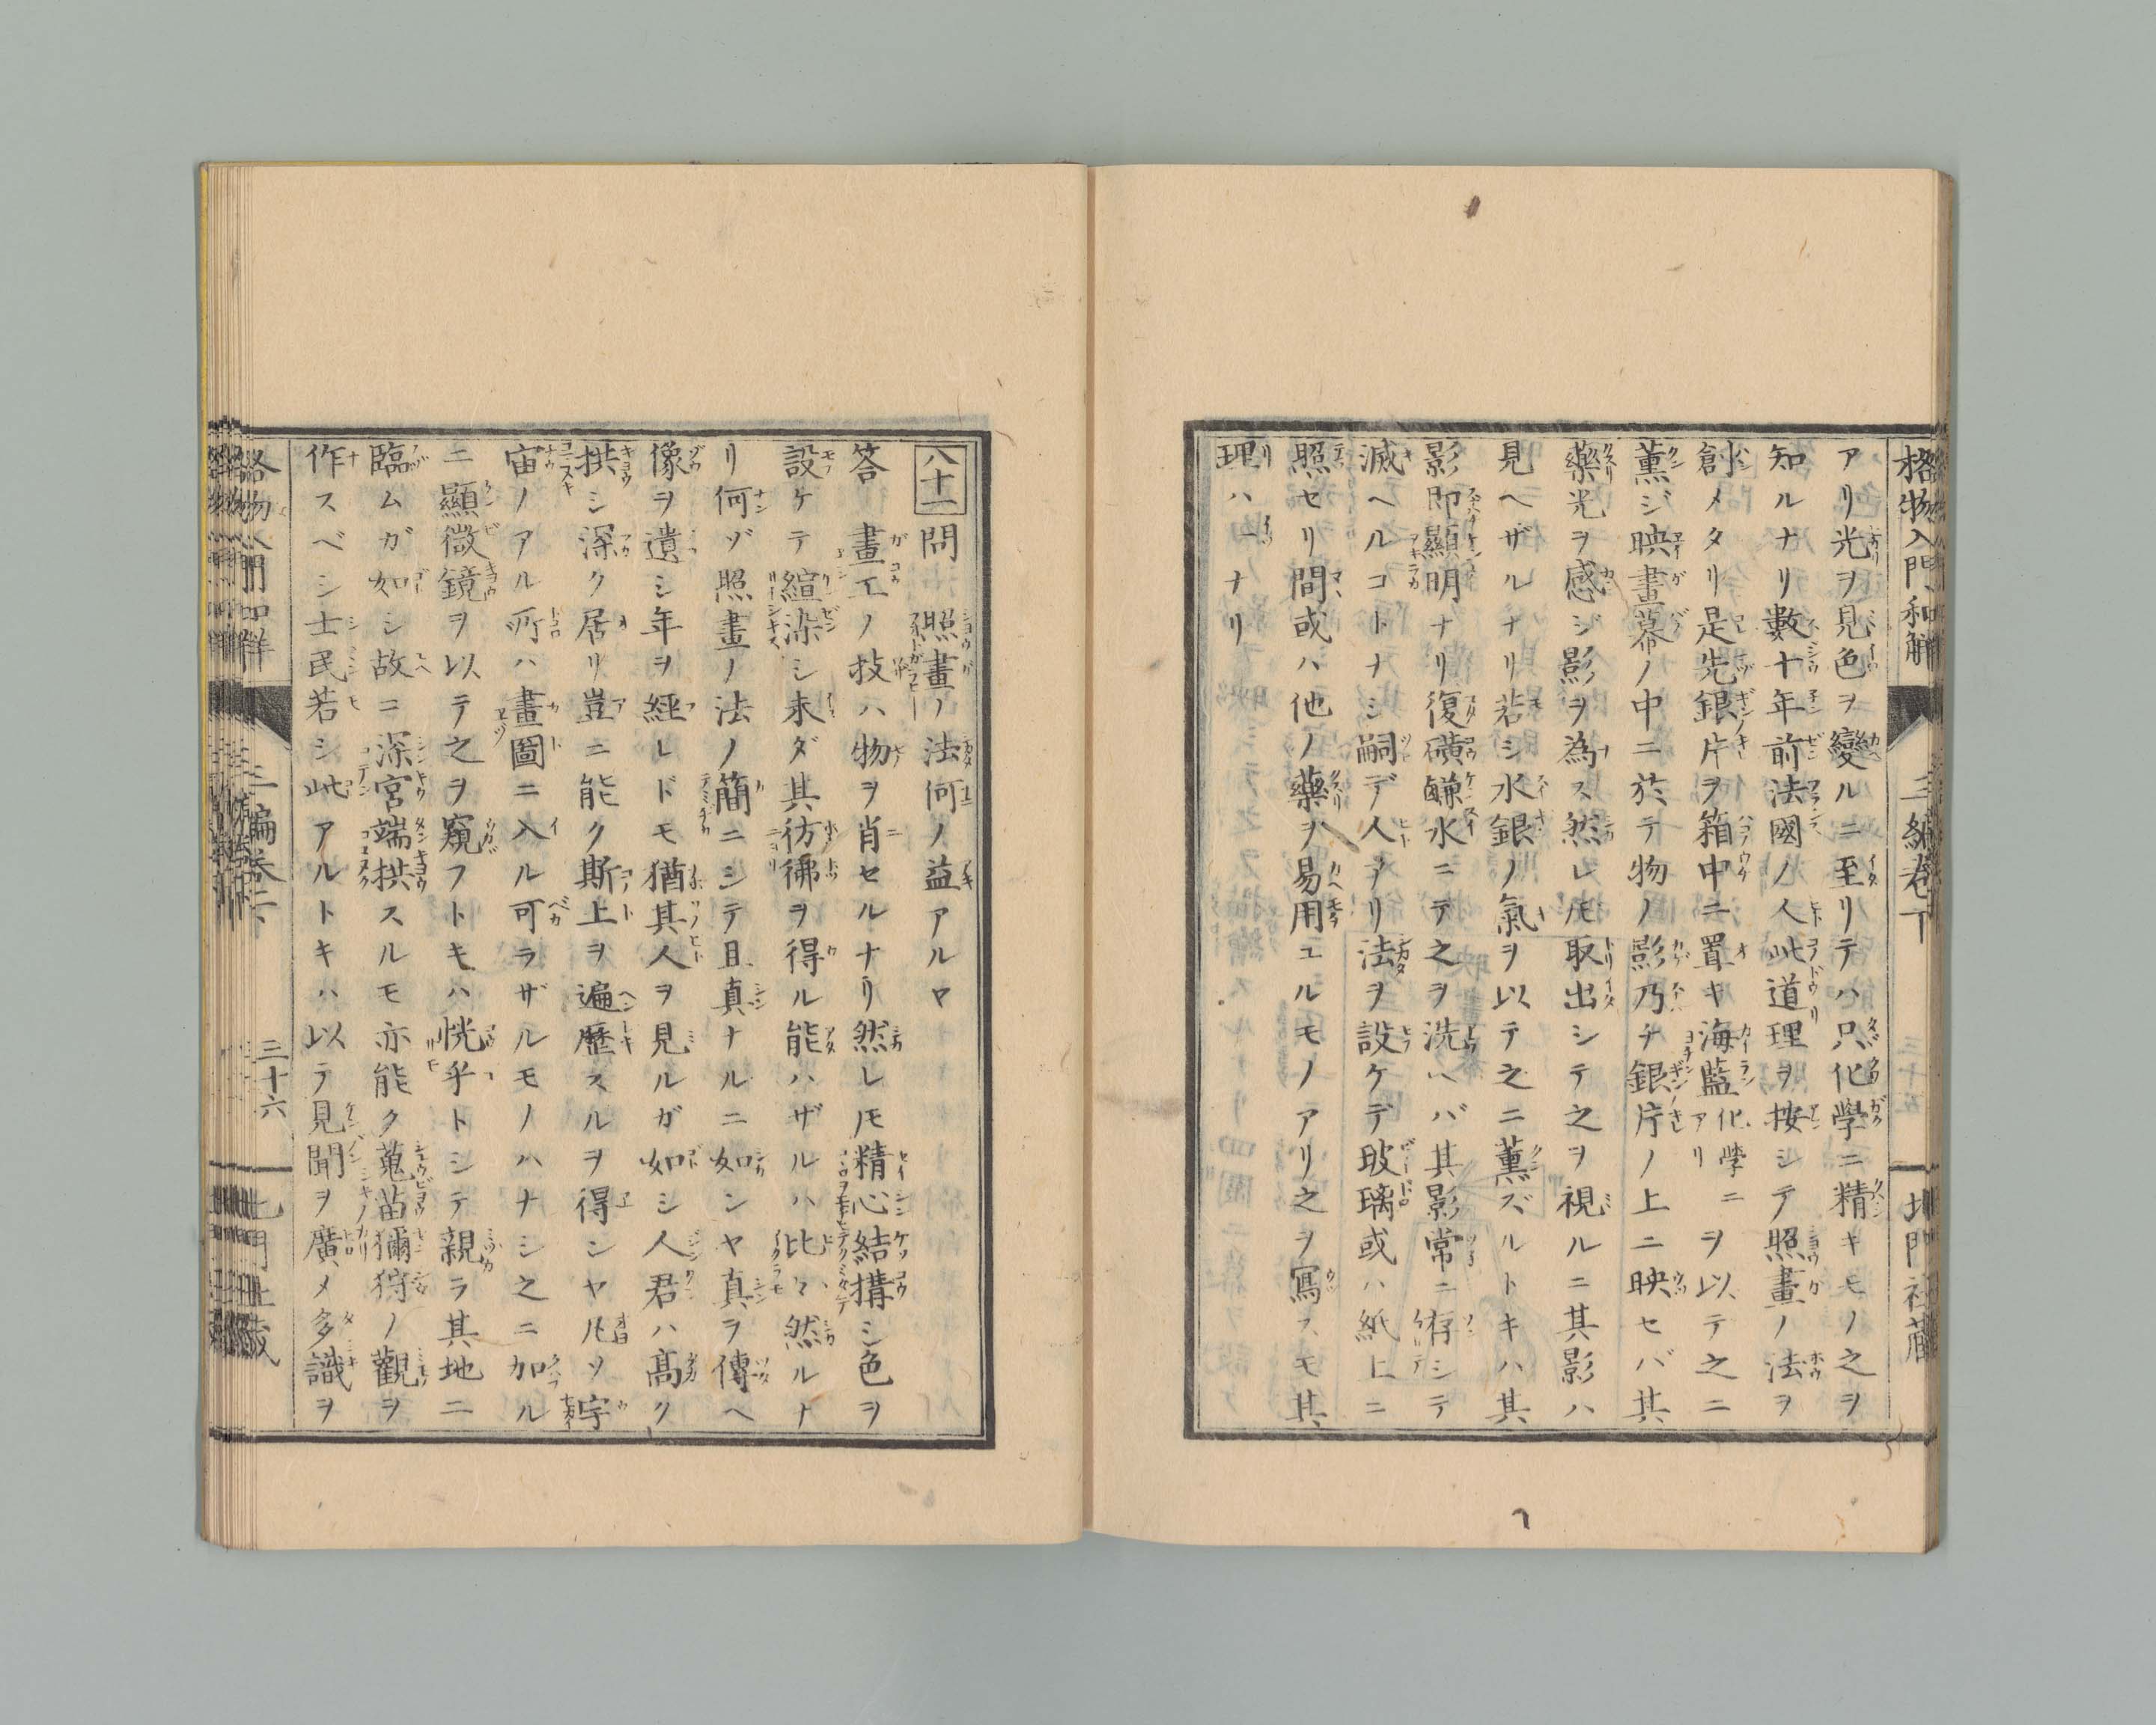 格物入門和解 三編卷下 北門社藏
アリ光ヲ見色ヲ變ルニ至リテハ只化學ニ精キモノ之ヲ
知ルナリ數十年前法國ノ人此道理ヲ按シテ照畫ノ法ヲ
創メタリ是先銀片ヲ箱中ニ置キ海藍化学ニアリヲ以テ之ニ
薫ジ映畫幕ノ中ニ於テ物ノ影乃チ銀片ノ上ニ映セバ其
藥光ヲ感ジ影ヲ為ス然レ𪜈取出シテ之ヲ視ルニ其影ハ
見ヘザルナリ若シ水銀ノ氣ヲ以テ之ニ薫ズルトキハ其
影即顯明ナリ復磺鹻水ニテ之ヲ洗ヘバ其影常ニ存シテ
滅ヘルコトナシ嗣デ人アリ法ヲ設ケテ玻璃或ハ紙上ニ
照セリ間或ハ他ノ藥ヲ易用ユルモノアリ之ヲ寫スモ其
理ハ一ナリ
八十一問 照畫ノ法何ノ益アルヤ
答 畫工ノ技ハ物ヲ肖セルナリ然レ𪜈精心結搆シ色ヲ
設ケテ縇染シ未ダ其彷彿ヲ得ル能ハザルハ比々然ルナ
リ何ゾ照畫ノ法ノ簡ニシテ且真ナルニ如ンヤ真ヲ傳ヘ
像ヲ遺シ年ヲ經レドモ猶其人ヲ見ルガ如シ人君ハ髙ク
拱シ深ク居リ豈ニ能ク斯上ヲ遍歷スルヲ得ンヤ凡ソ宇
宙ノアル所ハ畫圖ニ入ル可ラザルモノハナシ之ニ加ル
ニ顯微鏡ヲ以テ之ヲ窺フトキハ恍乎トシテ親ラ其地ニ
臨ムガ如シ故ニ深宮端拱スルモ亦能ク蒐苗獮狩ノ觀ヲ
作スベシ士民若シ此アルトキハ以テ見聞ヲ廣メ多識ヲ
三編卷下 三十六